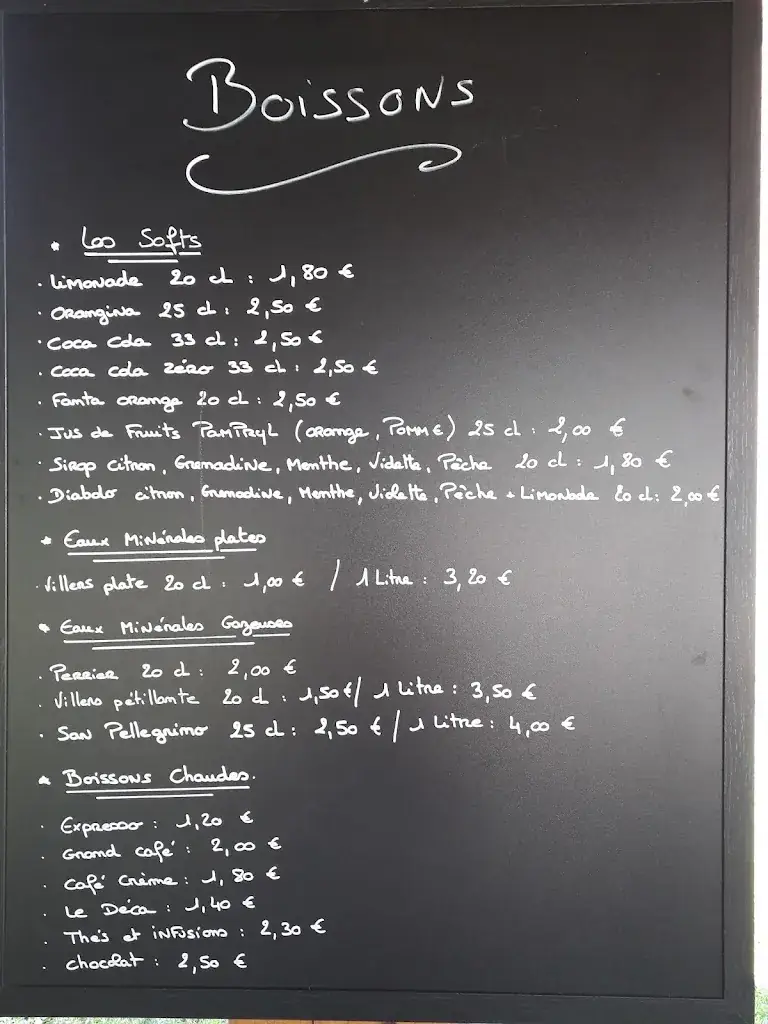 Boissons
* Les Softs
. Limonade 20 cl : 1,80 €
. Orangina 25 cl : 2,50 €
. Coca Cola 33 cl : 2,50 €
. Coca cola zéro 33 cl : 2,50 €
. Fanta orange 20 cl : 2,50 €
. Jus de Fruits PAMPRYL (orange, POMME) 25 cl : 2,00 €
. Sirop citron, Grenadine, Menthe, Violette, Pêche 20 cl : 1,80 €
. Diabolo citron, Grenadine, Menthe, Violette, Pêche + Limonade 20 cl : 2,00 €
* Eaux Minérales plates
. Villers plate 20 cl : 1,00 € / 1 Litre : 3,20 €
* Eaux Minérales Gazeuses
. Perrier 20 cl : 2,00 €
. Villers pétillante 20 cl : 1,50 € / 1 Litre : 3,50 €
. San Pellegrino 25 cl : 2,50 € / 1 Litre : 4,00 €
* Boissons Chaudes.
. Expresso : 1,20 €
. Grand café : 2,00 €
. Café Crème : 1,80 €
. Le Déca : 1,40 €
. Thés et infusions : 2,30 €
. chocolat : 2,50 €